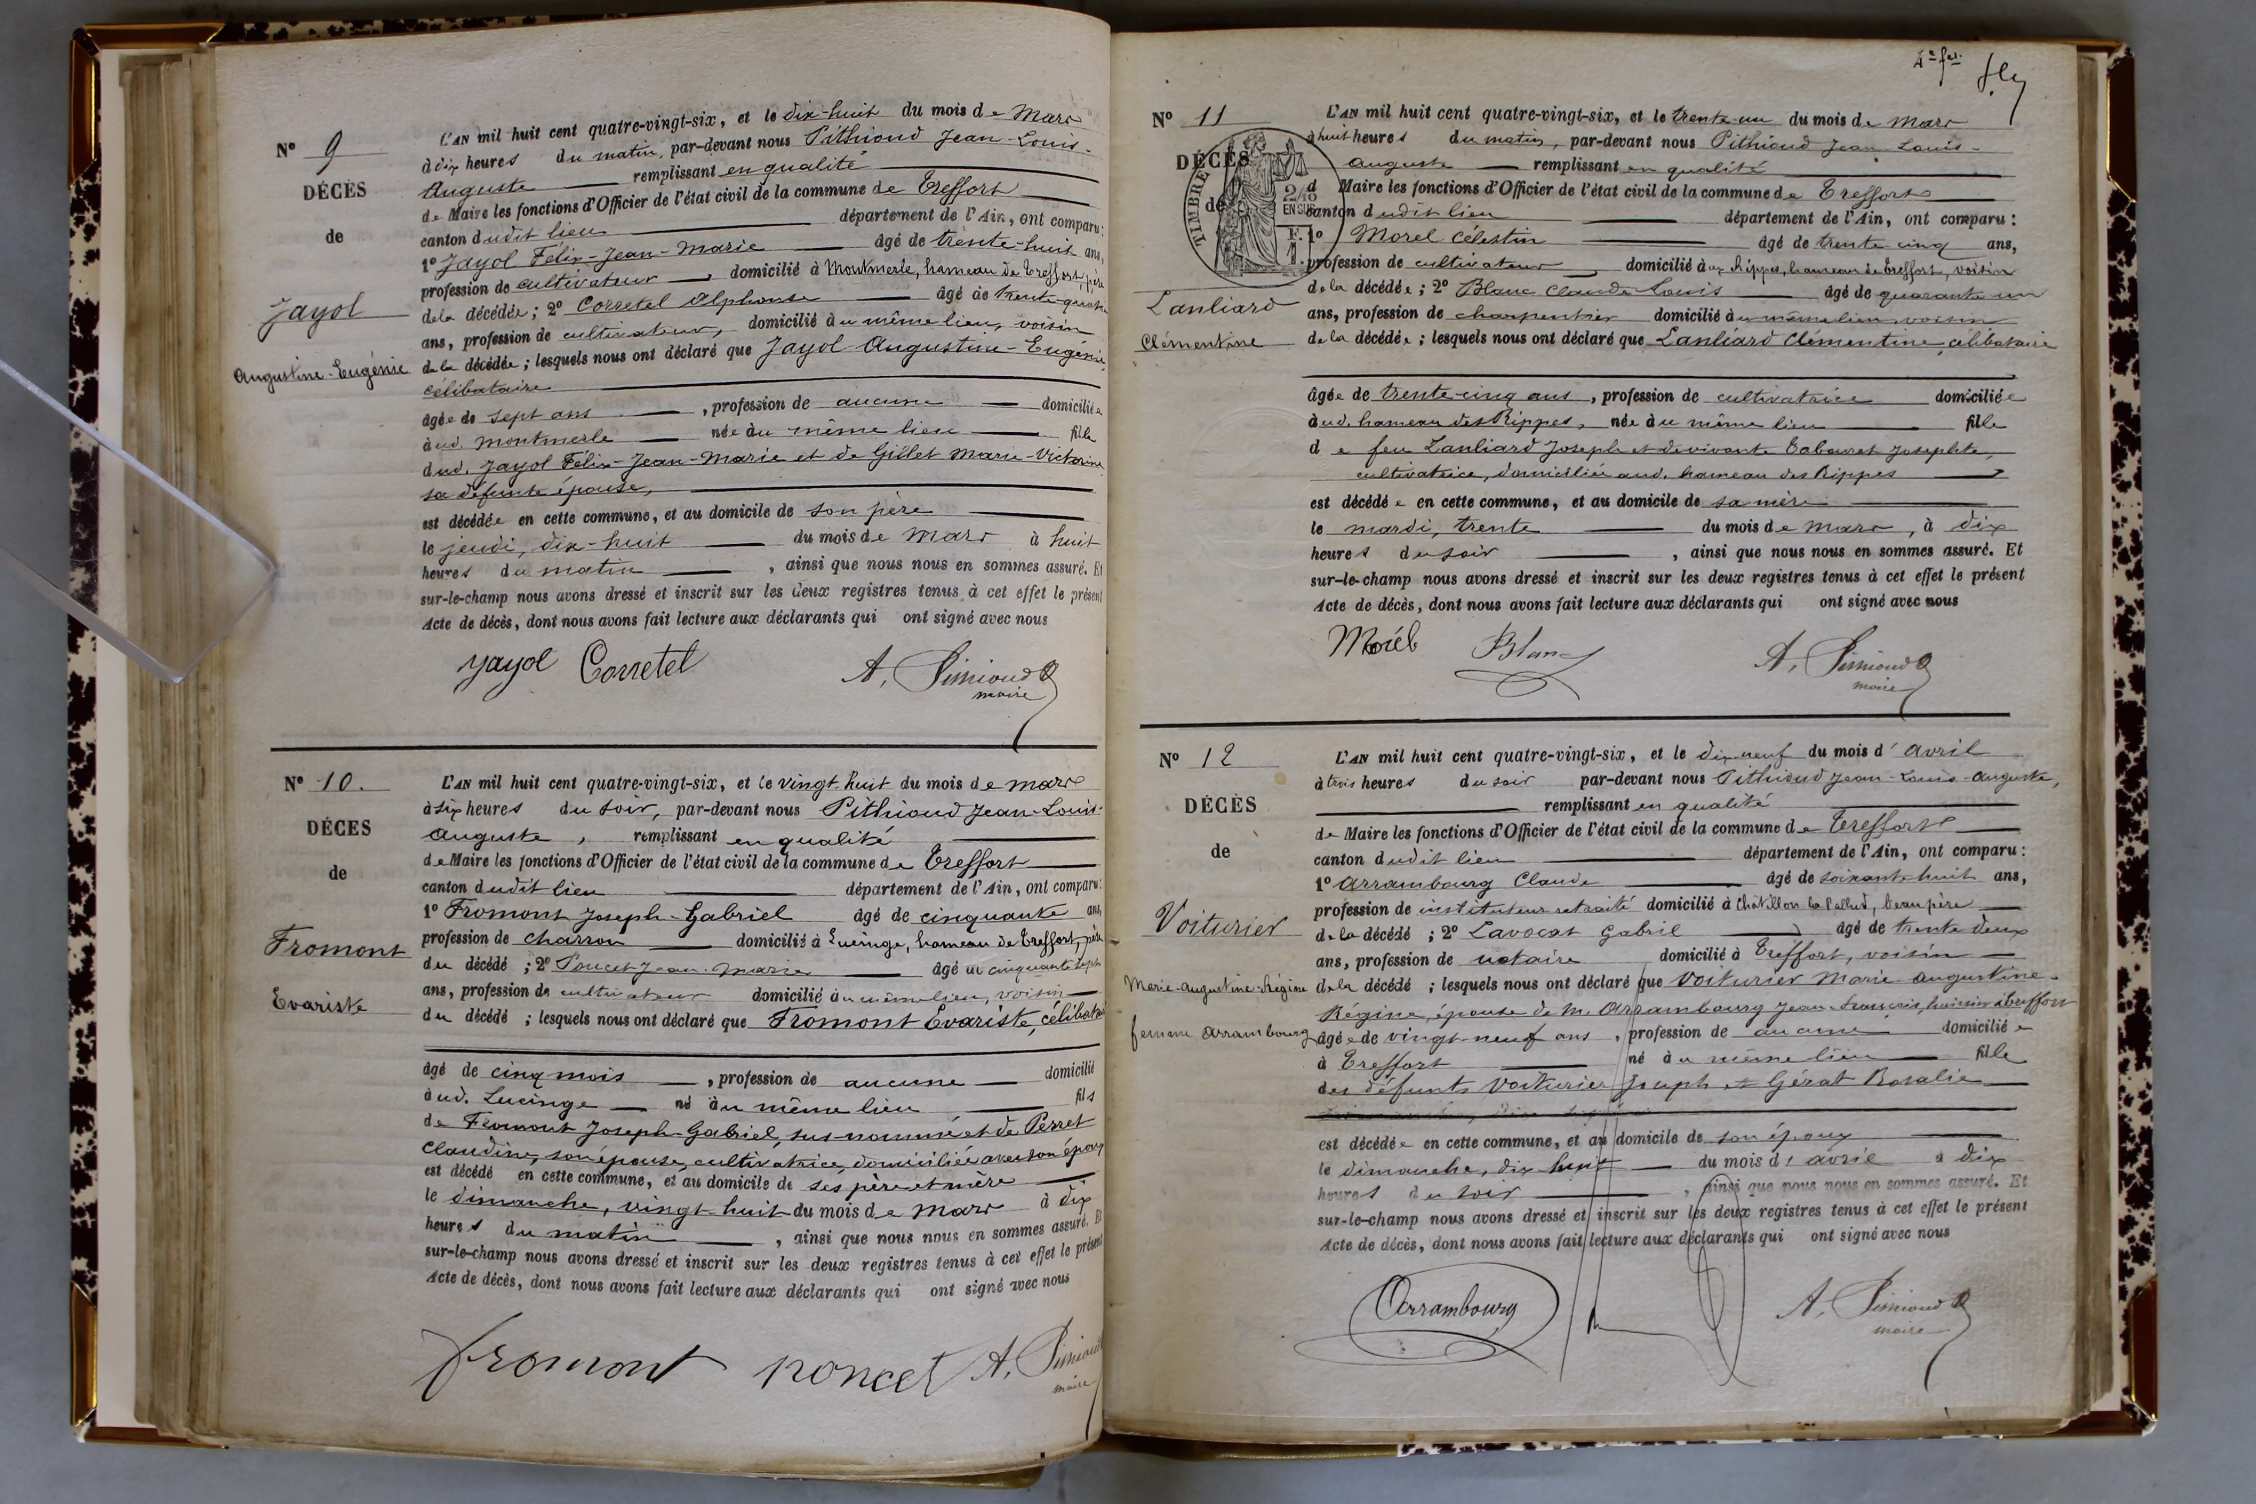 N° 9
DÉCÈS
de
Jayol
Augustine-Eugénie
L'AN mil huit cent quatre-vingt-six, et le dix-huit du mois de Mars
à dix heures du matin, par-devant nous Pithioud Jean-Louis-
Auguste remplissant en qualité
de Maire les fonctions d'Officier de l'état civil de la commune de Treffort
canton dudit lieu département de l'Ain, ont comparu :
1° Jayol Félix-Jean-Marie âgé de trente-huit ans,
profession de cultivateur, domicilié à Montmerle, hameau de Treffort, père
de la décédée ; 2° Corretel Alphonse âgé de trente-quatre
ans, profession de cultivateur, domicilié au même lieu, voisin
de la décédée ; lesquels nous ont déclaré que Jayol Augustine-Eugénie,
célibataire
âgée de sept ans, profession de aucune domiciliée
aud. Montmerle née au même lieu fille
dud. Jayol Félix-Jean-Marie et de Gillet Marie-Victorine
sa défunte épouse,
est décédée en cette commune, et au domicile de son père
le jeudi, dix-huit du mois de Mars à huit
heures du matin, ainsi que nous nous en sommes assuré. Et
sur-le-champ nous avons dressé et inscrit sur les deux registres tenus à cet effet le présent
Acte de décès, dont nous avons fait lecture aux déclarants qui ont signé avec nous
Jayol Corretel A. Pithioud
maire
N° 10.
DÉCÈS
de
Fromont
Evariste
L'AN mil huit cent quatre-vingt-six, et le vingt-huit du mois de mars
à six heures du soir, par-devant nous Pithioud Jean-Louis-
Auguste, remplissant en qualité
de Maire les fonctions d'Officier de l'état civil de la commune de Treffort
canton dudit lieu département de l'Ain, ont comparu :
1° Fromont Joseph-Gabriel âgé de cinquante ans,
profession de charron domicilié à Lucinge, hameau de Treffort, père
du décédé ; 2° Poncet Jean-Marie âgé de cinquante sept
ans, profession de cultivateur domicilié au même lieu, voisin
du décédé ; lesquels nous ont déclaré que Fromont Evariste, célibataire
âgé de cinq mois, profession de aucune domicilié
aud. Lucinge né au même lieu fils
de Fromont Joseph-Gabriel, sus-nommé et de Perret
Claudine, son épouse, cultivatrice, domiciliée avec son époux
est décédé en cette commune, et au domicile de ses père et mère
le dimanche, vingt-huit du mois de Mars à dix
heures du matin, ainsi que nous nous en sommes assuré. Et
sur-le-champ nous avons dressé et inscrit sur les deux registres tenus à cet effet le présent
Acte de décès, dont nous avons fait lecture aux déclarants qui ont signé avec nous
fromont poncet A. Pithioud
maire
N° 11
DÉCÈS
de
TIMBRE
2/10
EN SUS
F. 1.
Lanliard
Clémentine
L'AN mil huit cent quatre-vingt-six, et le trente un du mois de mars
à huit heures du matin, par-devant nous Pithioud Jean-Louis-
Auguste remplissant en qualité
d Maire les fonctions d'Officier de l'état civil de la commune de Treffort
canton dudit lieu département de l'Ain, ont comparu :
1° Morel Célestin âgé de trente cinq ans,
profession de cultivateur domicilié aux Rippes, hameau de Treffort, voisin
de la décédée ; 2° Blanc Claude Louis âgé de quarante un
ans, profession de charpentier domicilié au même lieu, voisin
de la décédée ; lesquels nous ont déclaré que Lanliard Clémentine, célibataire
âgée de trente-cinq ans, profession de cultivatrice domiciliée
aud. hameau des Rippes, née au même lieu fille
de feu Lanliard Joseph et de vivante Tabouret Josephte,
cultivatrice, domiciliée aud. hameau des Rippes
est décédée en cette commune, et au domicile de sa mère
le mardi, trente du mois de mars, à dix
heures du soir, ainsi que nous nous en sommes assuré. Et
sur-le-champ nous avons dressé et inscrit sur les deux registres tenus à cet effet le présent
Acte de décès, dont nous avons fait lecture aux déclarants qui ont signé avec nous
Morel Blanc A. Pithioud
maire
N° 12
DÉCÈS
de
Voiturier
Marie-Augustine-Régine
femme Arrambourg
L'AN mil huit cent quatre-vingt-six, et le dix-neuf du mois d'avril
à trois heures du soir par-devant nous Pithioud Jean-Louis-Auguste,
remplissant en qualité
de Maire les fonctions d'Officier de l'état civil de la commune de Treffort
canton dudit lieu département de l'Ain, ont comparu :
1° Arrambourg Claude âgé de soixante-huit ans,
profession de instituteur retraité domicilié à Châtillon la Pallud, beau père
de la décédé ; 2° Lavocat Gabriel âgé de trente deux
ans, profession de notaire domicilié à Treffort, voisin
de la décédé ; lesquels nous ont déclaré que Voiturier Marie-Augustine-
Régine, épouse de M. Arrambourg Jean-François, huissier à Treffort
âgée de vingt-neuf ans, profession de aucune domiciliée
à Treffort né au même lieu fille
des défunts Voiturier Joseph et Gérat Rosalie
est décédée en cette commune, et au domicile de son époux
le dimanche, dix huit du mois d'avril à dix
heures du soir, ainsi que nous nous en sommes assuré. Et
sur-le-champ nous avons dressé et inscrit sur les deux registres tenus à cet effet le présent
Acte de décès, dont nous avons fait lecture aux déclarants qui ont signé avec nous
Arrambourg A. Pithioud
maire